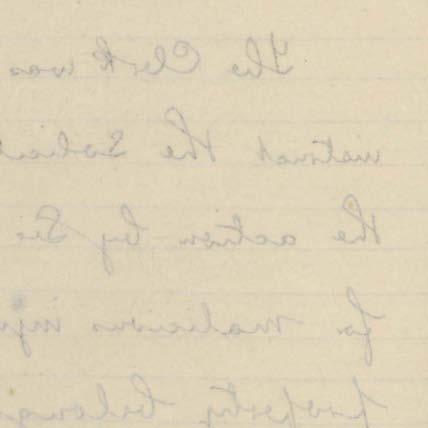 The Clerk was
instruct the Solicit
the action by
for malicious inju
property belong